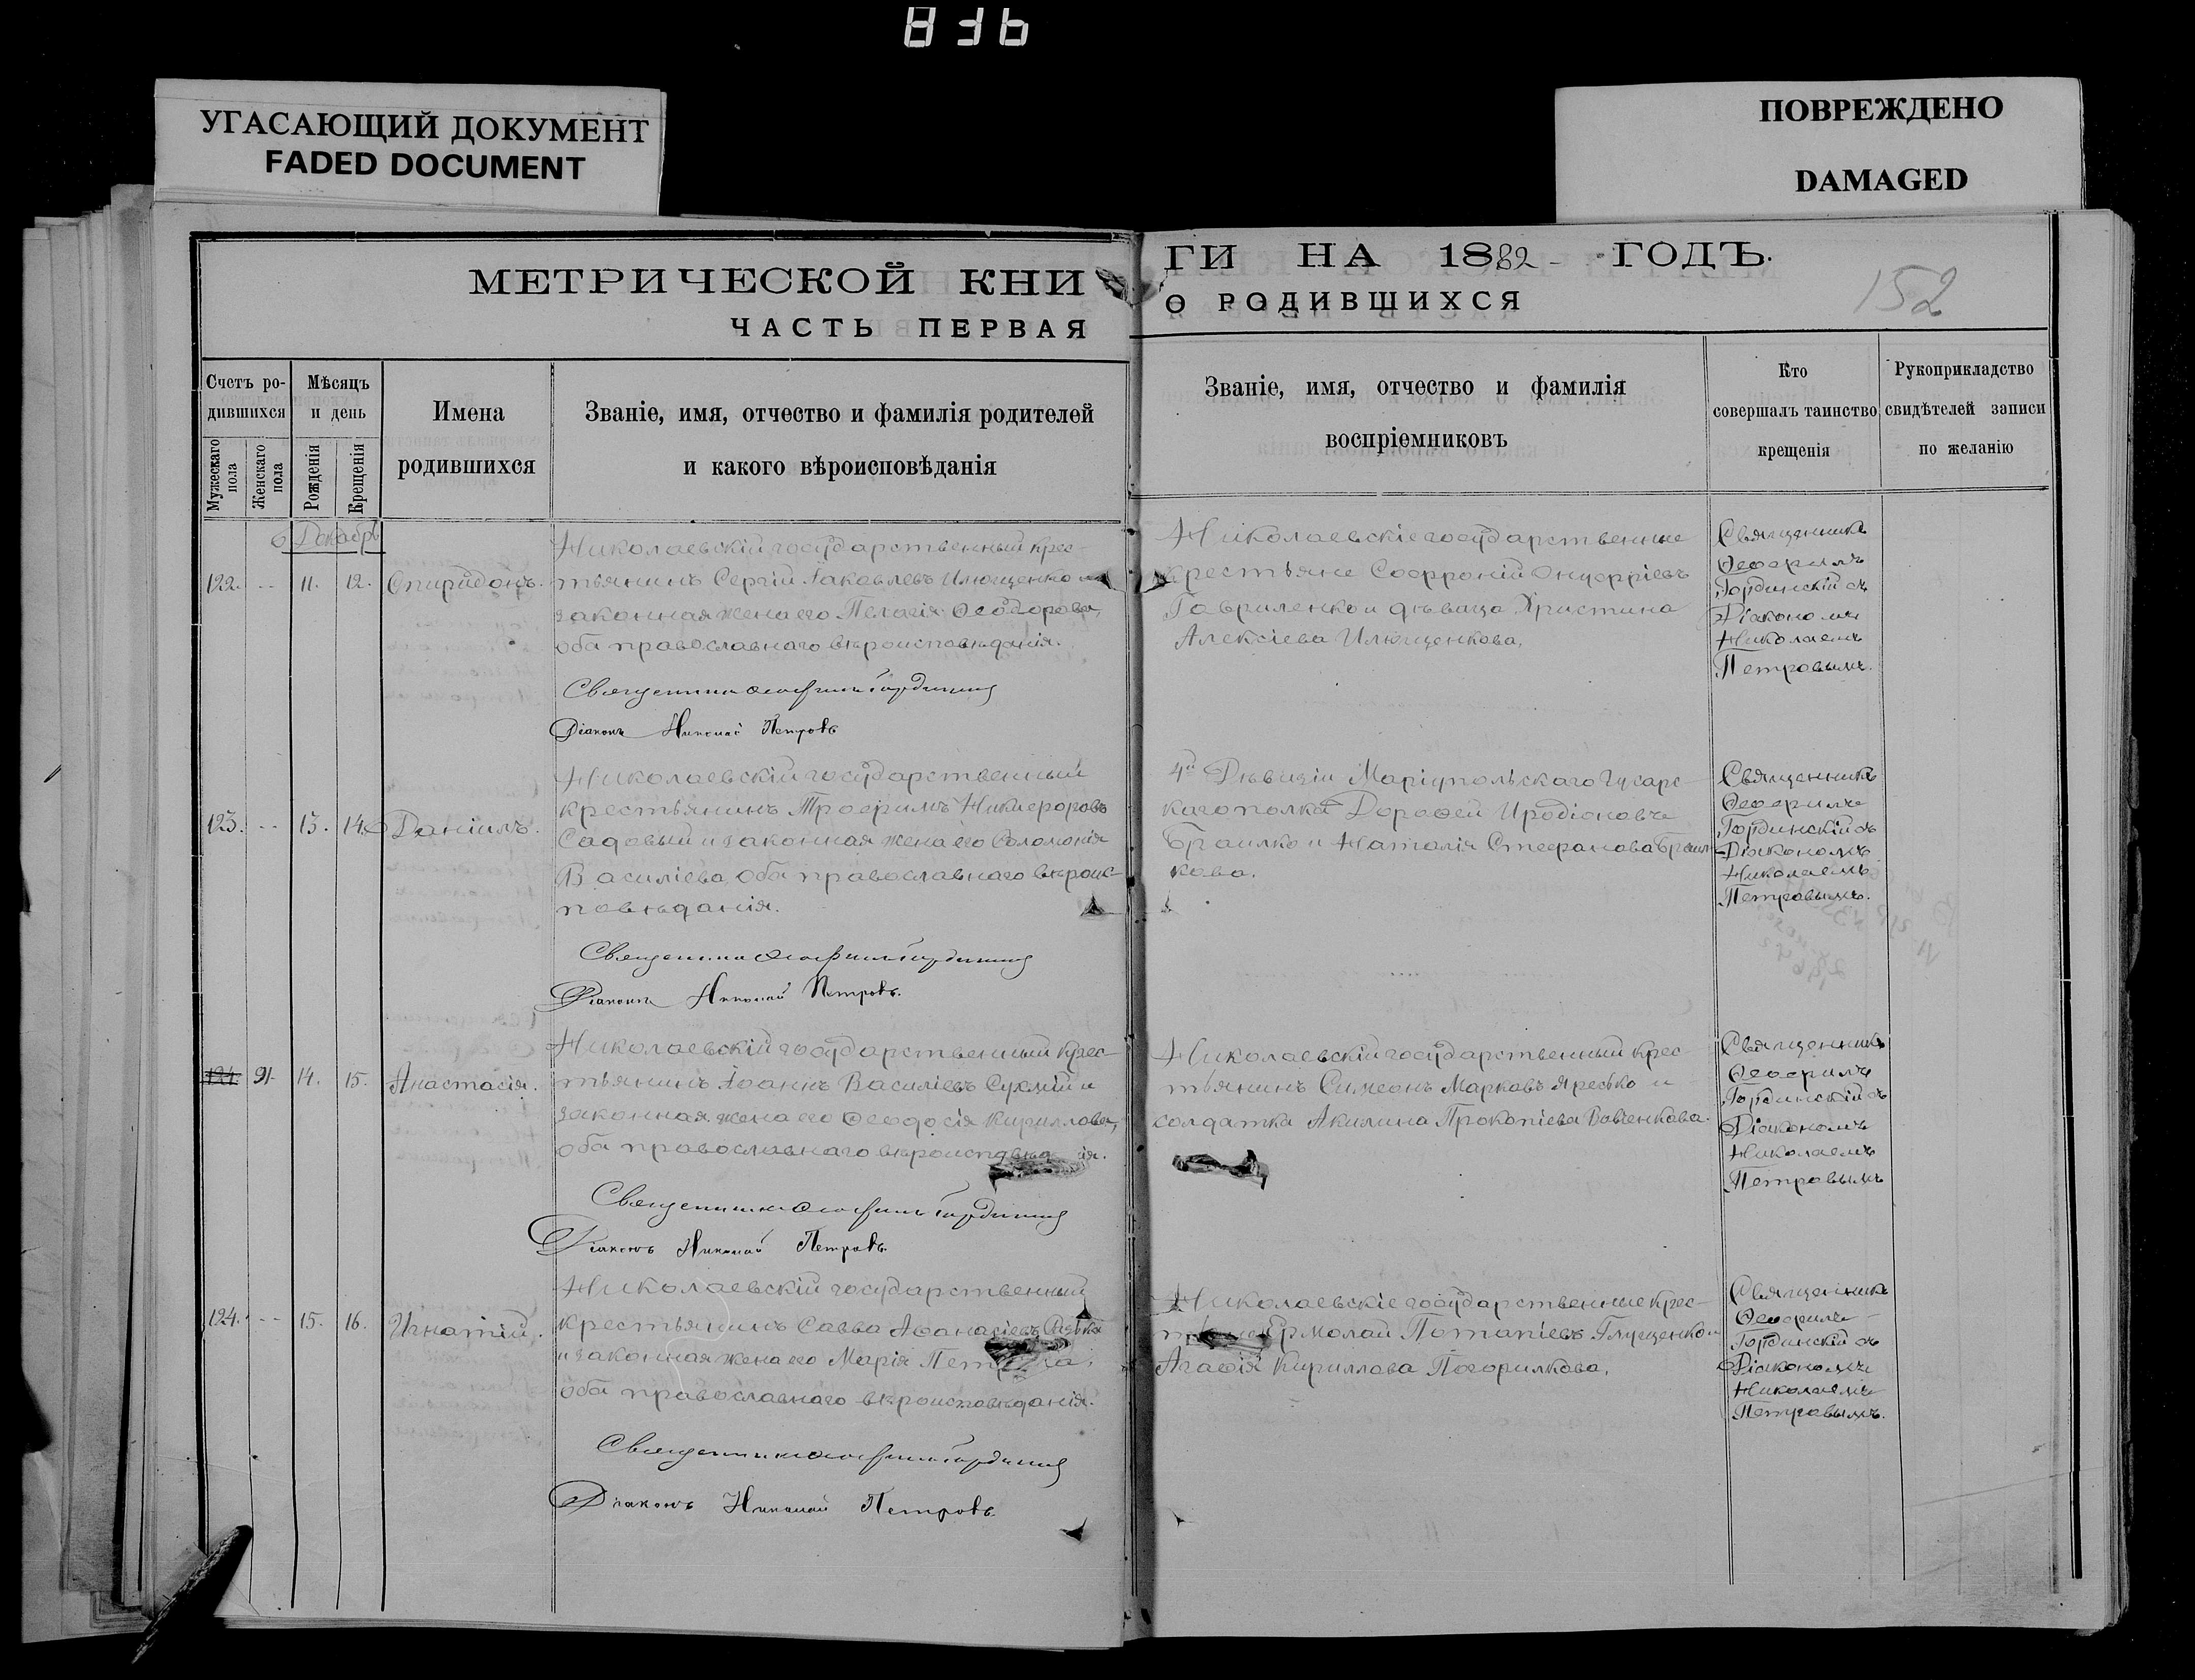 836
УГАСАЮЩИЙ ДОКУМЕНТ
FADED DOCUMENT
ПОВРЕЖДЕНО
DAMAGED
МЕТРИЧЕСКОЙ КНИ
ЧАСТЬ ПЕРВАЯ
Счетъ ро-
дившихся
Мужескаго пола
Женскаго пола
Мѣсяцъ
и день
Рожденія
Крещенія
Имена
родившихся
Званіе, имя, отчество и фамилія родителей
и какого вѣроисповѣданія
ГИ НА 1882 ГОДЪ.
О РОДИВШИХСЯ
152
Званіе, имя, отчество и фамилія
воспріемниковъ
Кто
совершалъ таинство
крещенія
Рукоприкладство
свидѣтелей записи
по желанію
Декабрь
122. -- 11. 12. Спиридонъ.
Николаевскій государственный крес-
тьянинъ Сергій Іаковлевъ Илющенко и
законная жена его Пелагія Ѳеодорова,
оба православнаго вѣроисповѣданія.
Священникъ Ѳеофилъ Гординскій
Діаконъ Николай Петровъ
Николаевскіе государственные
крестьяне Софроній Онуфріевъ
Гавриленко и дѣвица Христина
Алексіева Илющенкова.
Священникъ
Ѳеофилъ
Гординскій съ
Діакономъ
Николаемъ
Петровымъ.
123. -- 13. 14. Даніилъ.
Николаевскій государственный
крестьянинъ Трофимъ Никифоровъ
Садовый и законная жена его Соломонія
Василіева, оба православнаго вѣроис-
повѣданія.
Священникъ Ѳеофилъ Гординскій
Діаконъ Николай Петровъ.
4й Маріупольскаго Гусарс-
каго полка Дорофей Иродіоновъ
Браилко и Наталія Стефанова Браил-
кова.
Священникъ
Ѳеофилъ
Гординскій съ
Діакономъ
Николаемъ
Петровымъ.
91. 14. 15. Анастасія.
Николаевскій государственный крес-
тьянинъ Іоаннъ Василіевъ и
законная жена его Ѳеодосія Кириллова,
оба православнаго
Священникъ Ѳеофилъ Гординскій
Діаконъ Николай Петровъ.
Николаевскій государственный крес-
тьянинъ Симеонъ Марковъ Яресько и
солдатка Акилина Прокопіева Вовченкова.
Священникъ
Ѳеофилъ
Гординскій съ
Діакономъ
Николаемъ
Петровымъ
124. -- 15. 16. Игнатій.
Николаевскій государственный
крестьянинъ Савва Аѳанасіевъ
и законная жена его Марія
оба православнаго вѣроисповѣданія.
Священникъ Ѳеофилъ Гординскій
Діаконъ Николай Петровъ.
Николаевскіе государственные крес-
Ермолай Потапіевъ Глущенко и
Агафія Кириллова Погорилкова.
Священникъ
Ѳеофилъ
Гординскій съ
Діакономъ
Николаемъ
Петровымъ.